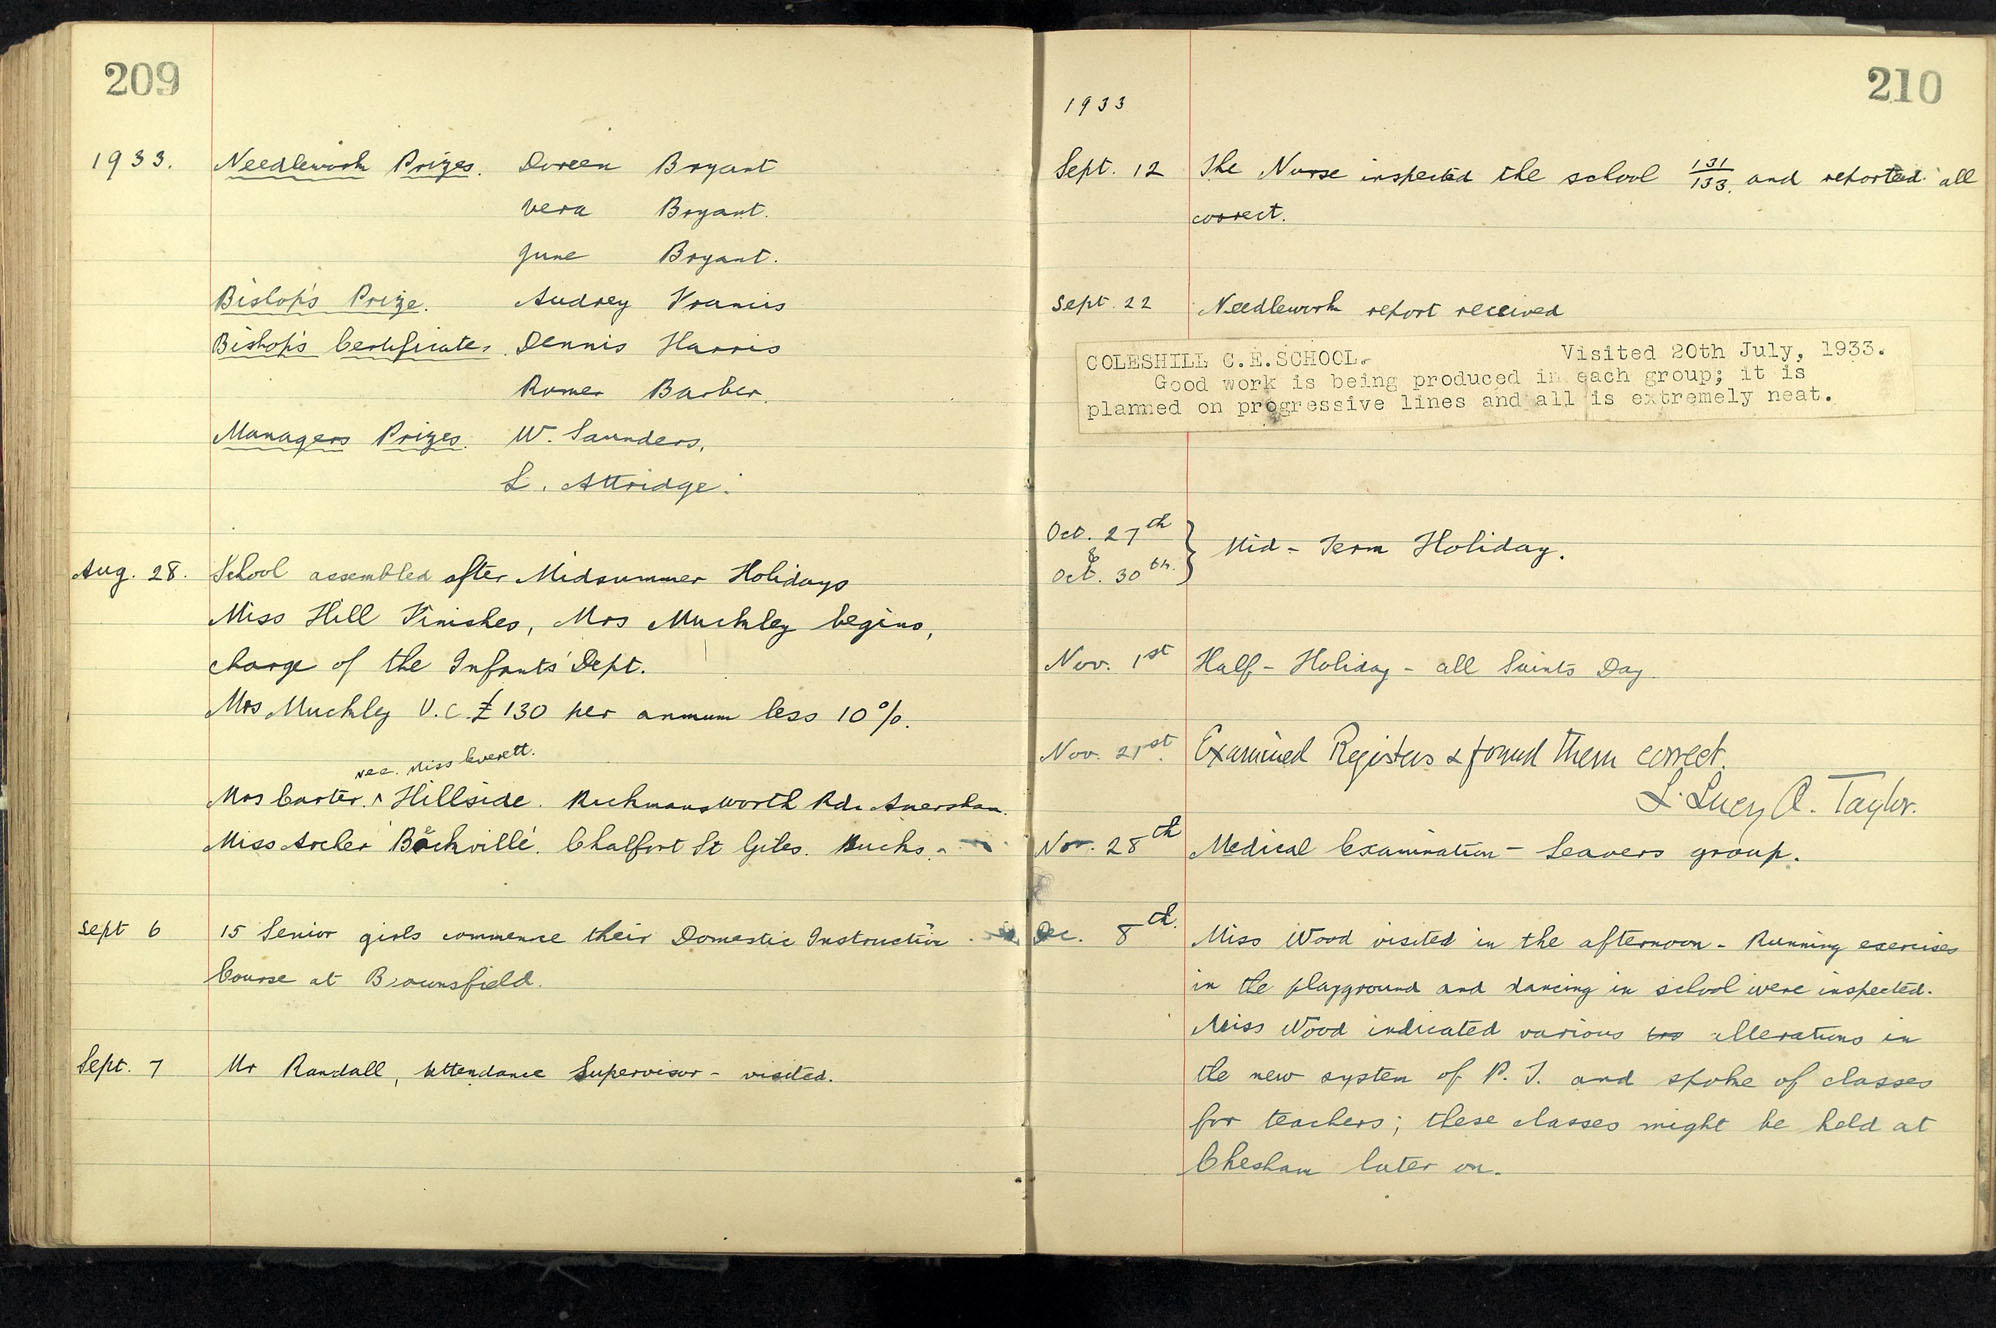 209
1933. Needlework Prizes. Doreen Bryant
Vera Bryant.
June Bryant.
Bishop's Prize. Audrey Francis
Bishop's Certificates. Dennis Harris
Romer Barber.
Managers Prizes. W. Saunders,
L. Attridge.
Aug. 28. School assembled after Midsummer Holidays
Miss Hill Finishes, Mrs Muckley begins,
charge of the Infants' Dept.
Mrs Muckley U.C. £130 per annum less 10%.
nee. Miss Everett.
Mrs Carter. ^ Hillside. Rickmansworth Rd. Amersham.
Miss Archer 'Beckville'. Chalfont St Giles. Bucks.
Sept 6 15 Senior girls commence their Domestic Instruction
Course at Brownsfield.
Sept. 7 Mr Randall, Attendance Supervisor - visited.
210
1933
Sept. 12 The Nurse inspected the school 131/133. and reported all
correct.
Sept. 22 Needlework report received
COLESHILL C.E.SCHOOL. Visited 20th July, 1933.
Good work is being produced in each group; it is
planned on progressive lines and all is extremely neat.
Oct. 27th
& } Mid-Term Holiday.
Oct. 30th.
Nov. 1st Half-Holiday - all Saints Day.
Nov. 21st. Examined Registers & found them correct.
L. Lucy A. Taylor.
Nov. 28th Medical Examination - Leavers group.
Dec. 8th. Miss Wood visited in the afternoon - Running exercises
in the playground and dancing in school were inspected.
Miss Wood indicated various alterations in
the new system of P.T. and spoke of classes
for teachers; these classes might be held at
Chesham later on.